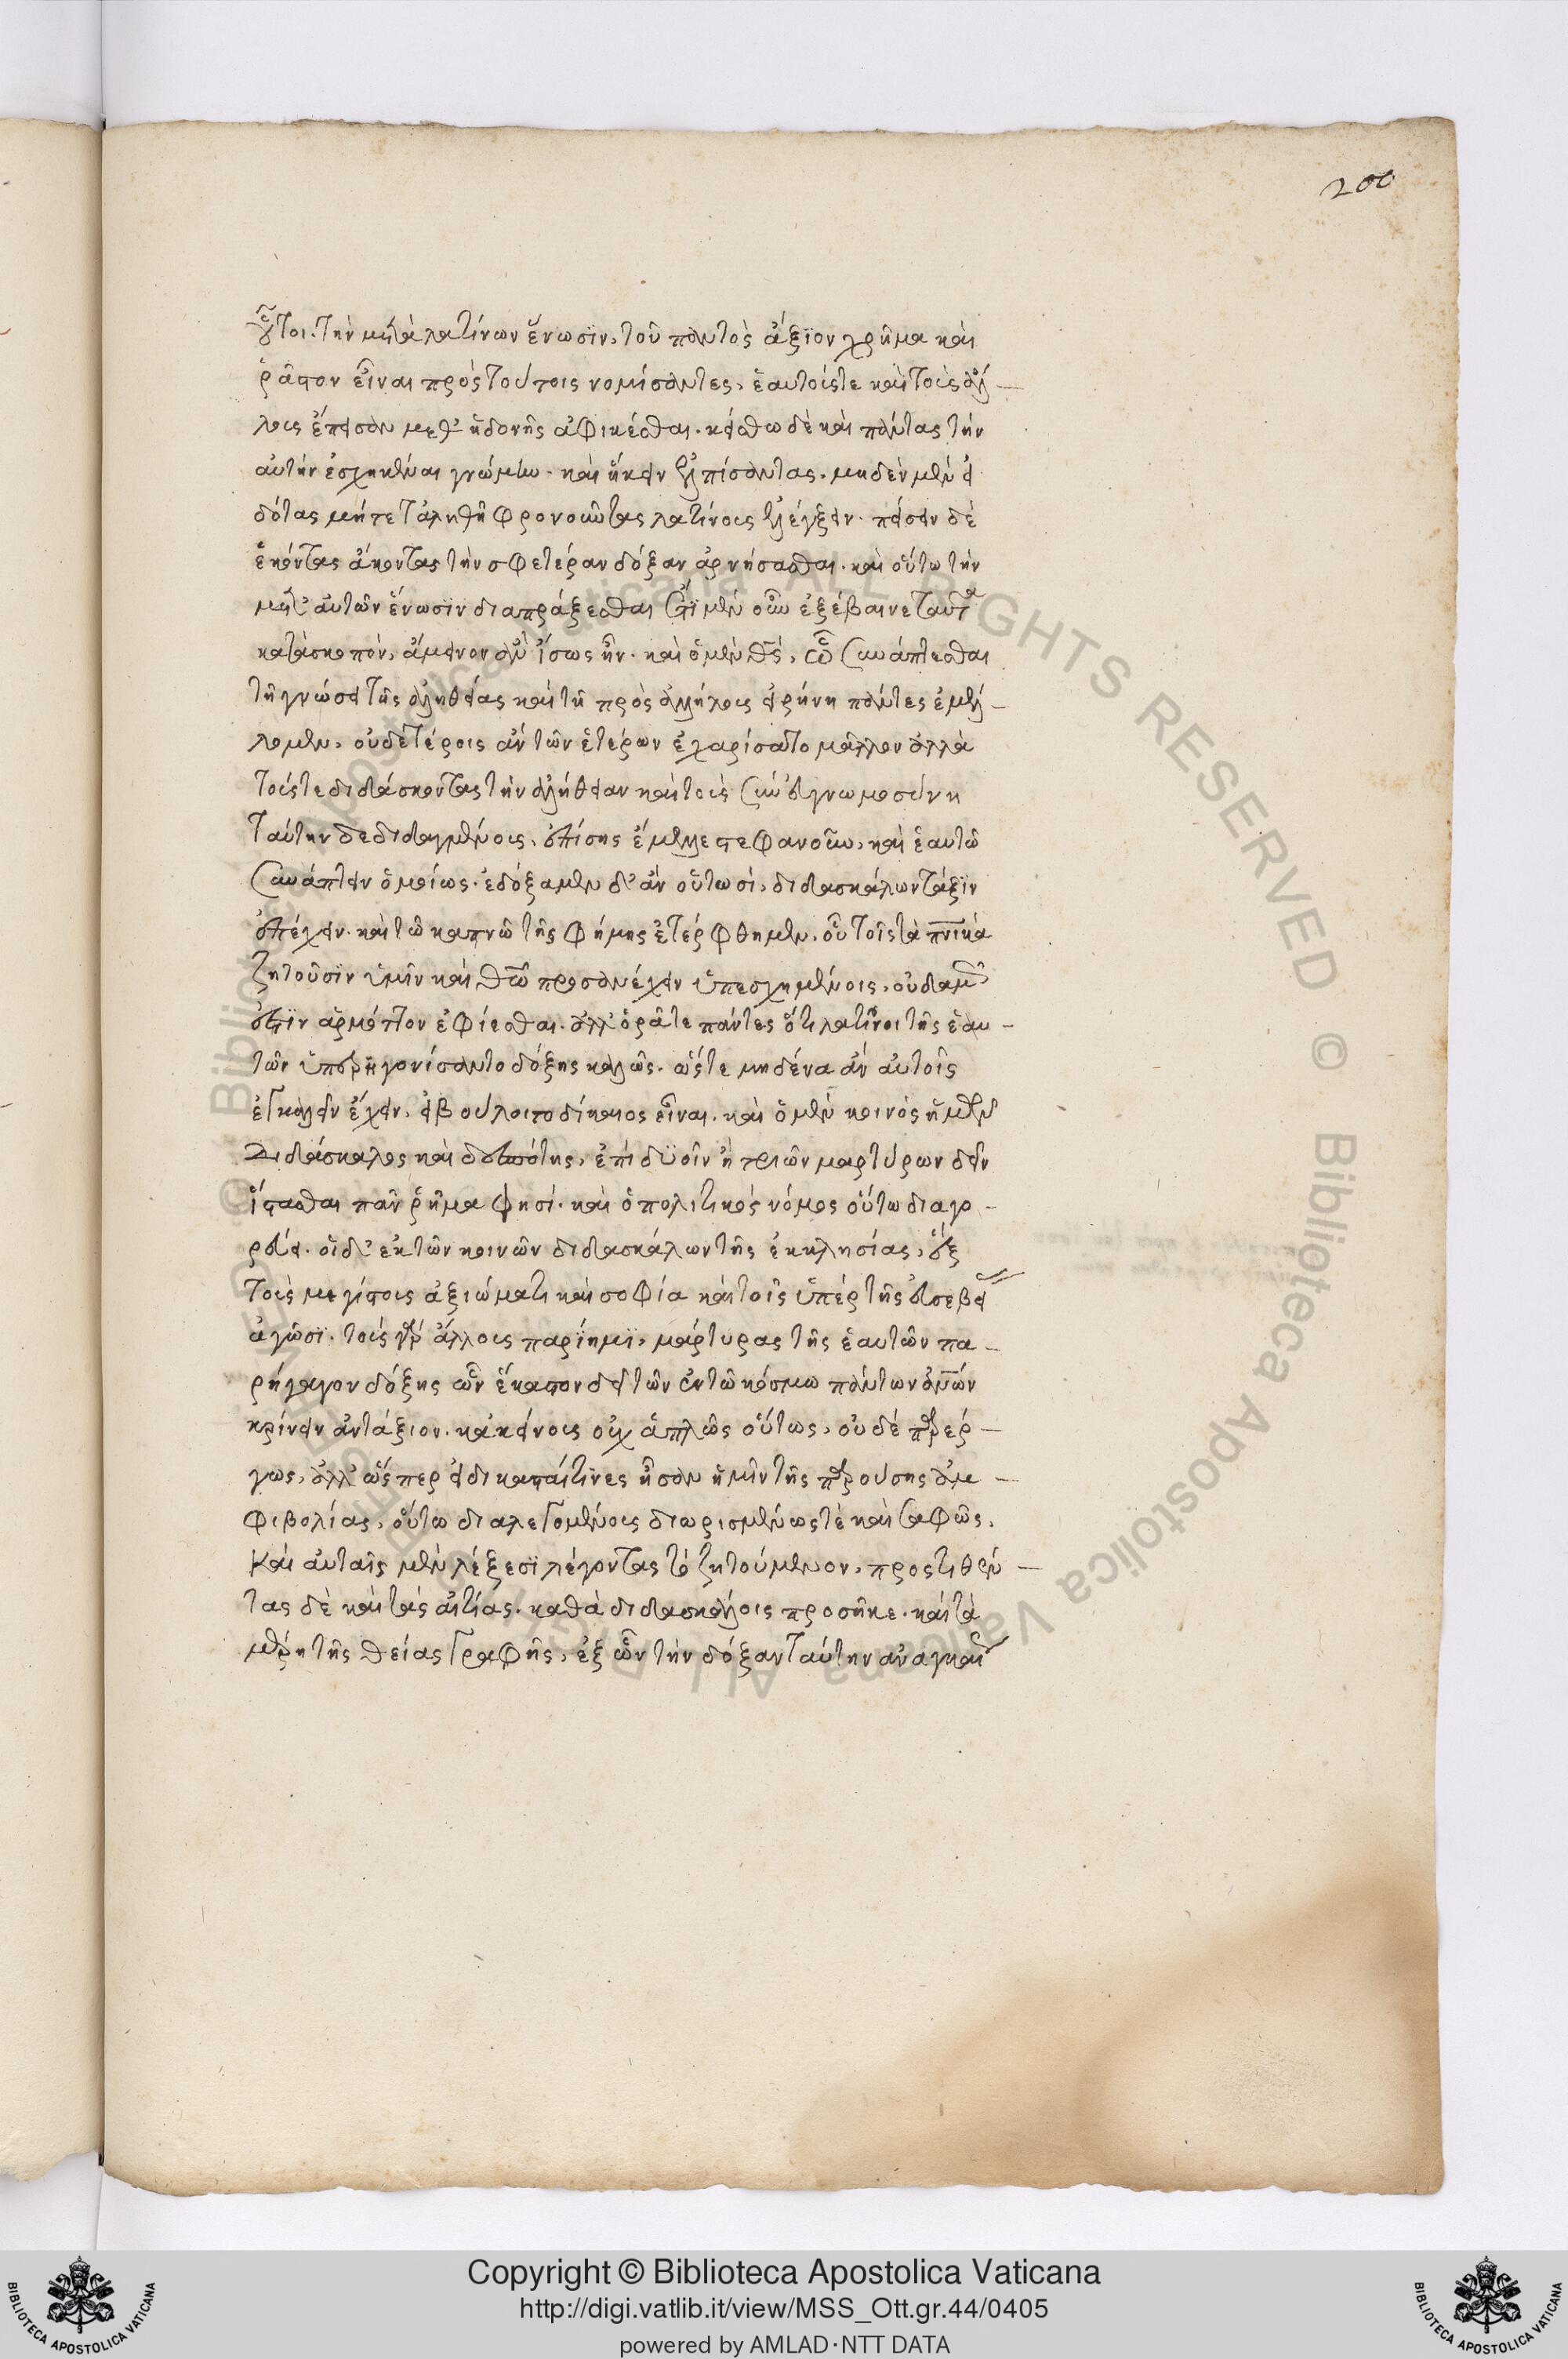 200
οὗτοι. τὴν μετὰ λατίνων ἕνωσϊν, τοῦ παντὸς ἄξϊον χρῆμα καὶ
ῥᾶστον εἶναι πρὸς τούτοις νομίσαντες, ἑαυτοῖς τε καὶ τοῖς ἄλ-
λοις ἔπεισαν μεθ' ἡδονῆς ἀφικέσθαι. κείσθω δὲ καὶ πάντας τὴν
αὐτὴν ἐσχηκέναι γνώμην. καὶ ἥκειν ἐλπίσαντας. μηδὲν μὲν εἰ
δότας μήτε τἀληθῆ φρονοῦντας λατίνοις ἐλέγξειν. πείσειν δὲ
ἑκόντας ἄκοντας τὴν σφετέραν δόξαν ἀρνήσασθαι. καὶ οὕτω τὴν
μετ' αὐτῶν ἕνωσϊν διαπράξεσθαι εἰ μὲν οὖν ἐξέβαινε ταῦτα
κατὰ σκοπὸν, ἄμεινον ἂν ἴσως ἦν. καὶ ὁ μὲν θς, ὧ συνάπτεσθαι
τῆ γνώσει τῆς ἀληθείας καὶ τῆ πρὸς ἀλλήλους εἰρήνη πάντες ἐμέλ-
λομεν, οὐδετέροις ἂν τῶν ἑτέρων ἐχαρίσατο μᾶλλον ἀλλὰ
τούς τε διδάσκοντας τὴν ἀλήθειαν καὶ τοὺς σὺν εὐγνωμοσύνη
ταύτην δεδιδαγμένους, ἐπίσης ἔμελλε στεφανοῦν, καὶ ἑαυτῶ
συνάπτειν ὁμοίως. ἐδόξαμεν δ' ἂν οὕτωσὶ, διδασκάλων τάξϊν
ἐπέχειν. καὶ τῶ καπνῶ τῆς φήμης ἐτέρφθημεν, οὗ τοῖς τὰ πνικὰ
ζητοῦσϊν ὑμῖν καὶ θῶ προσανέχειν ὑπεσχημένοις, οὐδαμῶς
ἐστϊν ἁρμόττον ἐφίεσθαι. ἀλλ' ὁρᾶτε πάντες ὅτι λατῖνοι τῆς ἑαυ-
τῶν ὑπερηγωνίσαντο δόξης καλῶς. ὥστε μηδένα ἂν αὐτοῖς
ἐγκαλεῖν ἔχειν, εἰ βούλοιτο δίκαιος εἶναι. καὶ ὁ μὲν κοινὸς ἡμῶν
διδάσκαλος καὶ δεσπότης, ἐπὶ δυοῖν ἢ τριῶν μαρτύρων δεῖν
ἵστασθαι πᾶν ῥῆμα φησί. καὶ ὁ πολιτικὸς νόμος οὕτω διαγο-
ρεύει. οἱ δ' ἐκ τῶν κοινῶν διδασκάλων τῆς ἐκκλησίας, ἓξ
τοὺς μεγίστους ἀξιώματι καὶ σοφία καὶ τοῖς ὑπὲρ τῆς εὐσεβείας
ἀγῶσϊ. τοὺς γὰρ ἄλλους παρίημϊ, μάρτυρας τῆς ἑαυτῶν πα-
ρήγαγον δόξης ὧν ἕκαστον δεῖ τῶν ἐν τῶ κόσμω πάντων ἀνῶν
κρίνειν ἀντάξιον. κἀκείνους οὐχ ἁπλῶς οὕτως, οὐδὲ παρέρ-
γως, ἀλλ' ὥσπερ εἰ δικασταί τινες ἦσαν ἡμῖν τῆς παρούσης ἀμ-
φιβολίας, οὕτω διαλεγομένους διωρισμένως τὲ καὶ σαφῶς,
καὶ αὐταῖς μὲν λέξεσϊ λέγοντας τὸ ζητούμενον, προστιθέν-
τας δὲ καὶ τὰς αἰτίας. καθὰ διδασκάλοις προσῆκε. καὶ τὰ
μέρη τῆς θείας γραφῆς, ἐξ ὧν τὴν δόξαν ταύτην ἀναγκαῖον
© Biblioteca Apostolica Vaticana ALL RIGHTS RESERVED
BIBLIOTECA APOSTOLICA VATICANA
Copyright © Biblioteca Apostolica Vaticana
http://digi.vatlib.it/view/MSS_Ott.gr.44/0405
powered by AMLAD·NTT DATA
BIBLIOTECA APOSTOLICA VATICANA